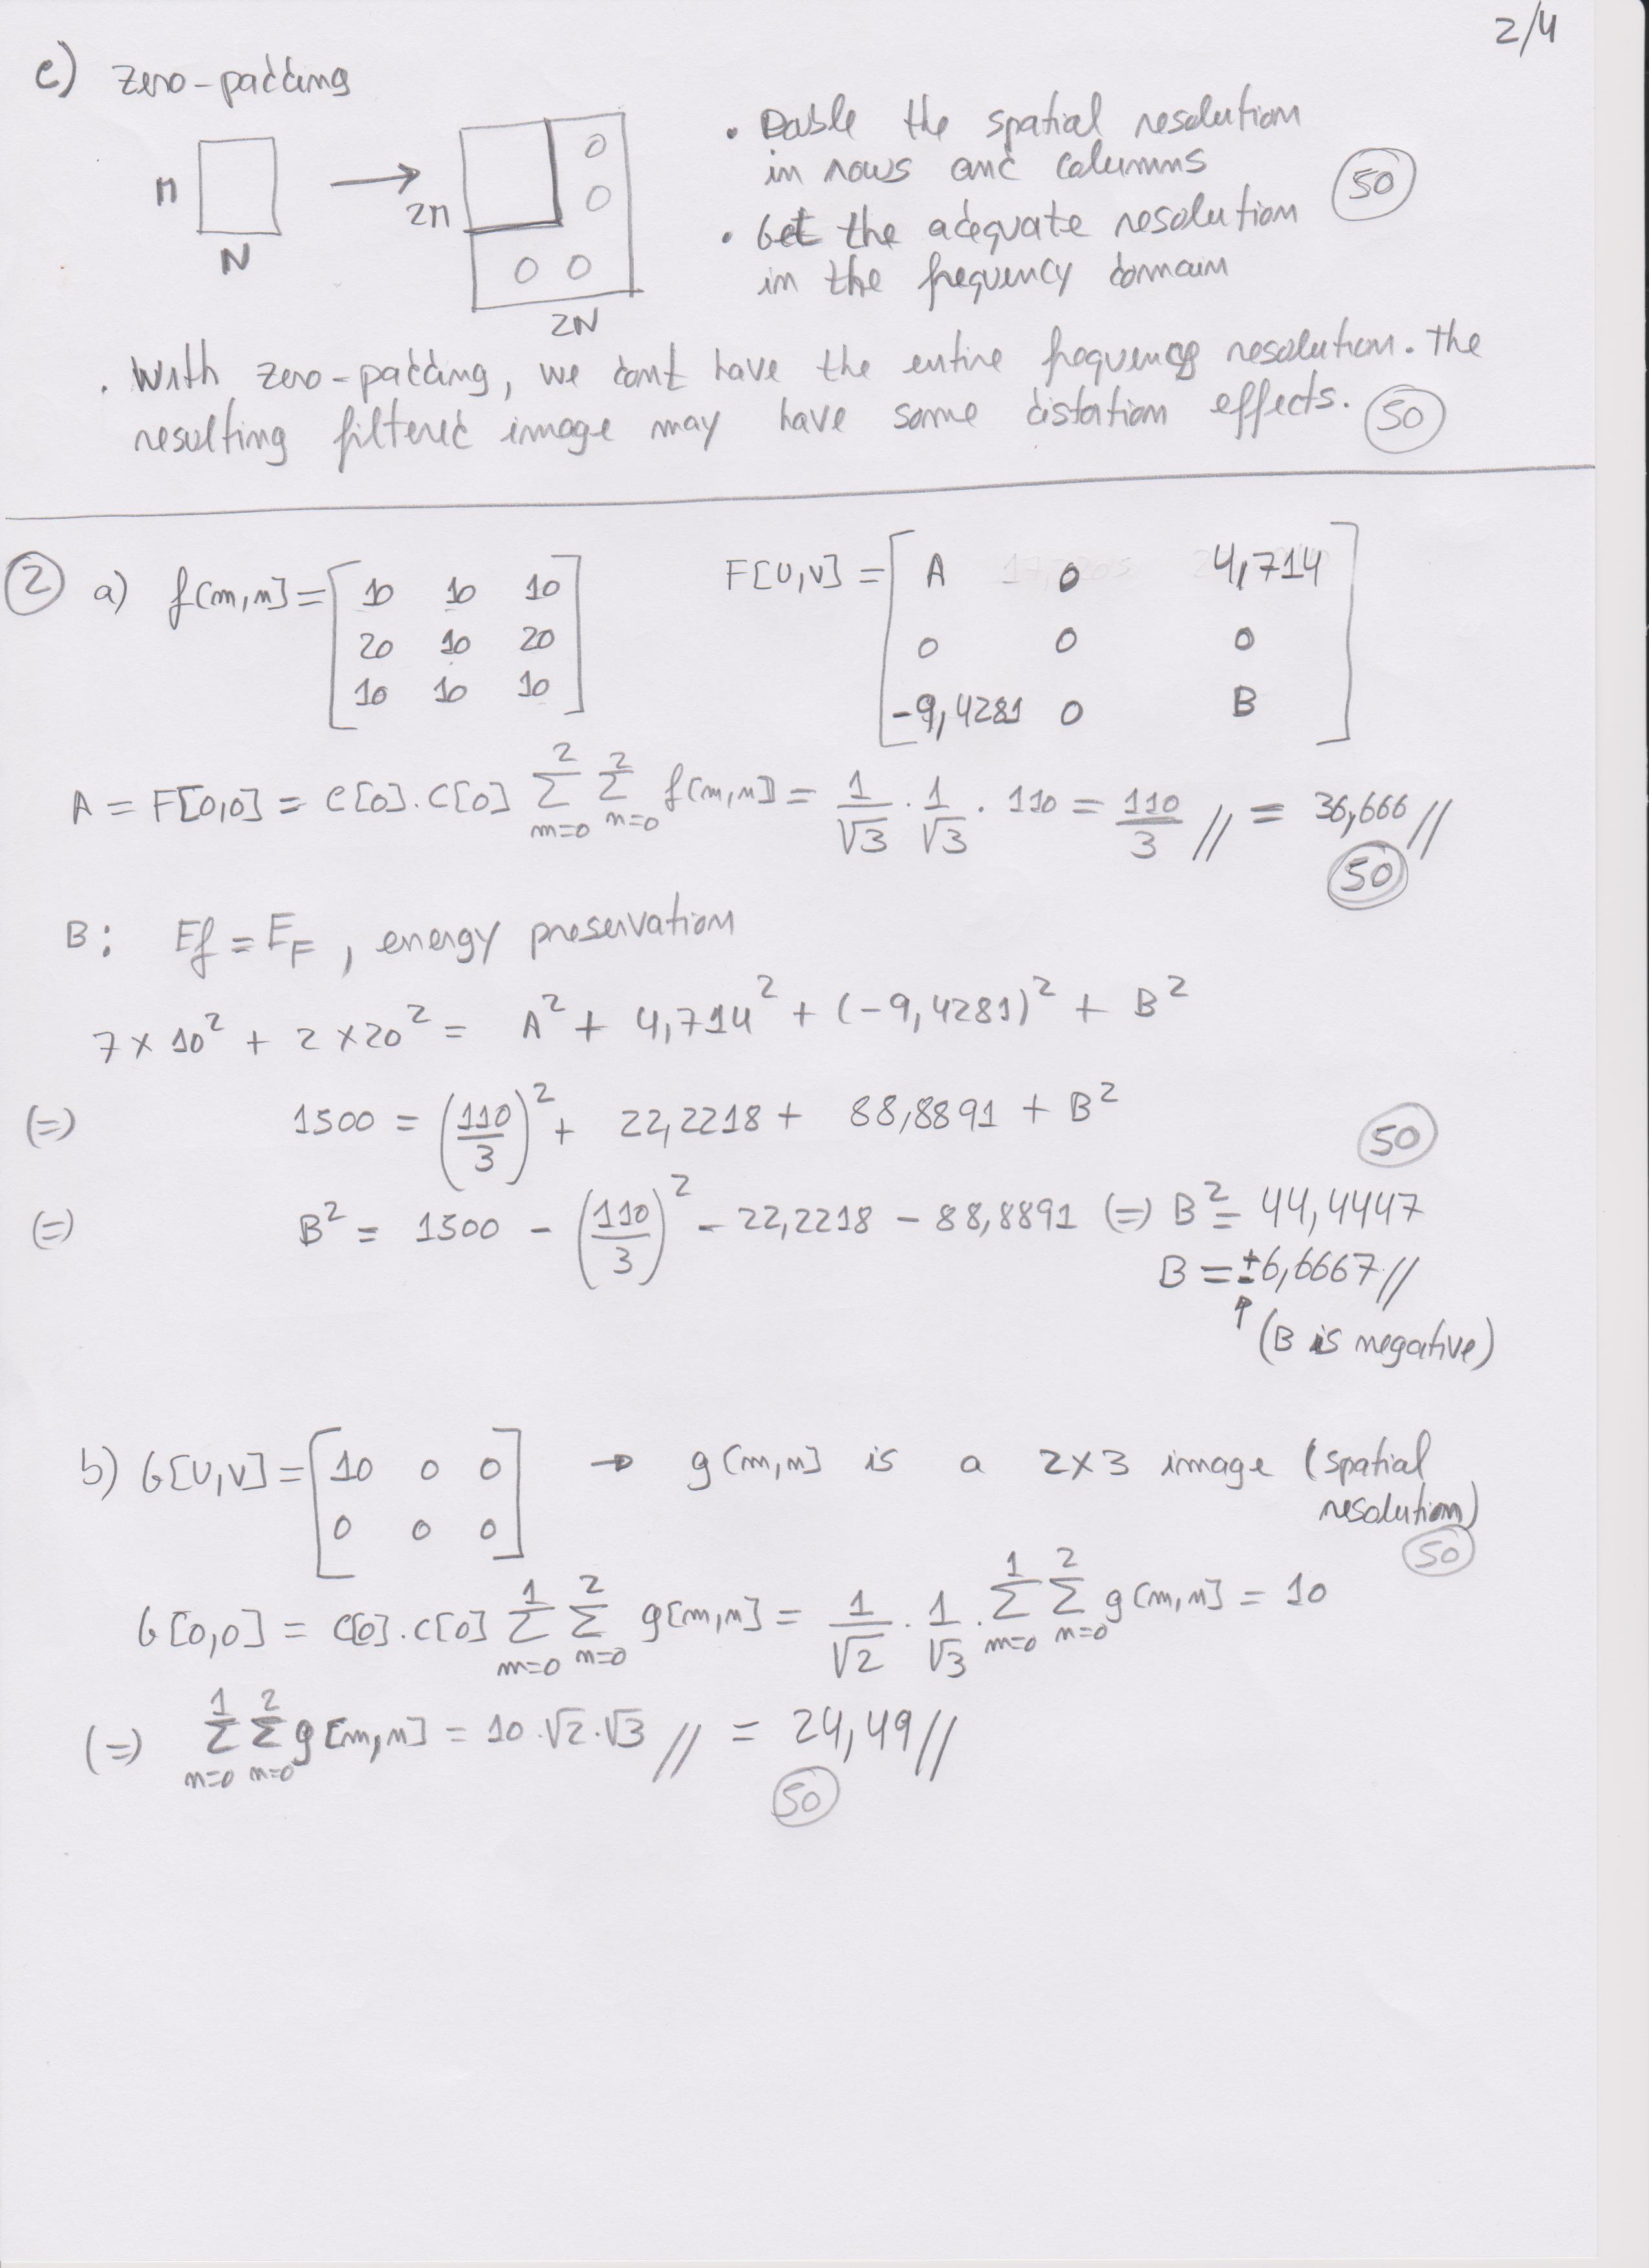 2/4
c) zero-padding
M N → 2M 0 0 0 0 2N
• Double the spatial resolution
in rows and columns
50
• Get the adequate resolution
in the frequency domain
. With zero-padding, we dont have the entire frequency resolution. The
resulting filtered image may have some distortion effects. 50
2 a) f[m,n] = [10 10 10
20 10 20
10 10 10]
F[U,V] = [A 0 4,714
0 0 0
-9,4281 0 B]
A = F[0,0] = C[0].C[0] 2Σm=0 2Σn=0 f[m,n] = 1/√3 . 1/√3 . 110 = 110/3 // = 36,666 //
50
B: Ef = EF, energy preservation
7 × 10² + 2 × 20² = A² + 4,714² + (-9,4281)² + B²
(=) 1500 = (110/3)² + 22,2218 + 88,8891 + B²
50
(=) B² = 1500 - (110/3)² - 22,2218 - 88,8891 (=) B² = 44,4447
B = ±6,6667 //
↑ (B is negative)
b) G[U,V] = [10 0 0
0 0 0]
→ g[m,n] is a 2×3 image (spatial
resolution)
50
G[0,0] = C[0].C[0] 1Σm=0 2Σn=0 g[m,n] = 1/√2 . 1/√3 . 1Σm=0 2Σn=0 g[m,n] = 10
(=) 1Σm=0 2Σn=0 g[m,n] = 10.√2.√3 // = 24,49 //
50